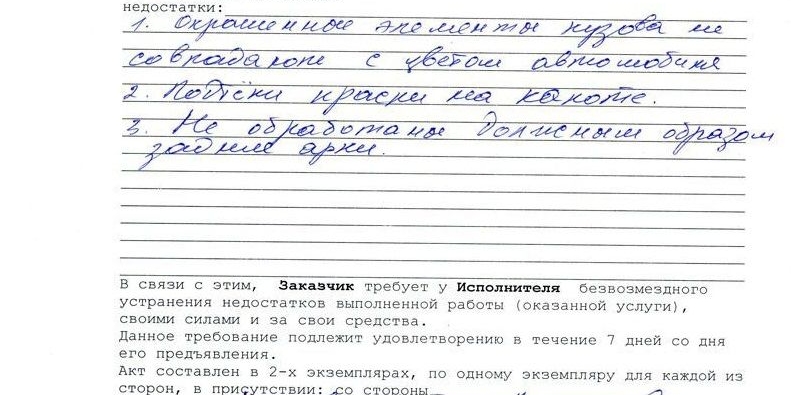 недостатки:
1. Окрашенные элементы кузова не
совпадают с цветом автомобиля
2. Подтёки краски на капоте.
3. Не обработаны должным образом
задние арки.
В связи с этим, Заказчик требует у Исполнителя безвозмездного
устранения недостатков выполненной работы (оказанной услуги),
своими силами и за свои средства.
Данное требование подлежит удовлетворению в течение 7 дней со дня
его предъявления.
Акт составлен в 2-х экземплярах, по одному экземпляру для каждой из
сторон, в присутствии: со стороны